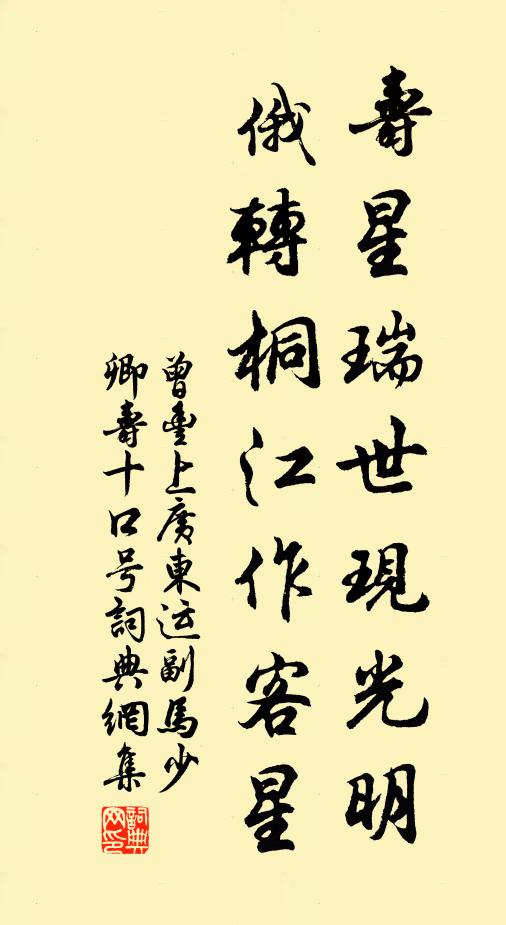 壽星瑞世現光明
俄轉桐江作客星
曾豊上廣東运副馬少
卿壽十口号詞典網集
詞典
网印